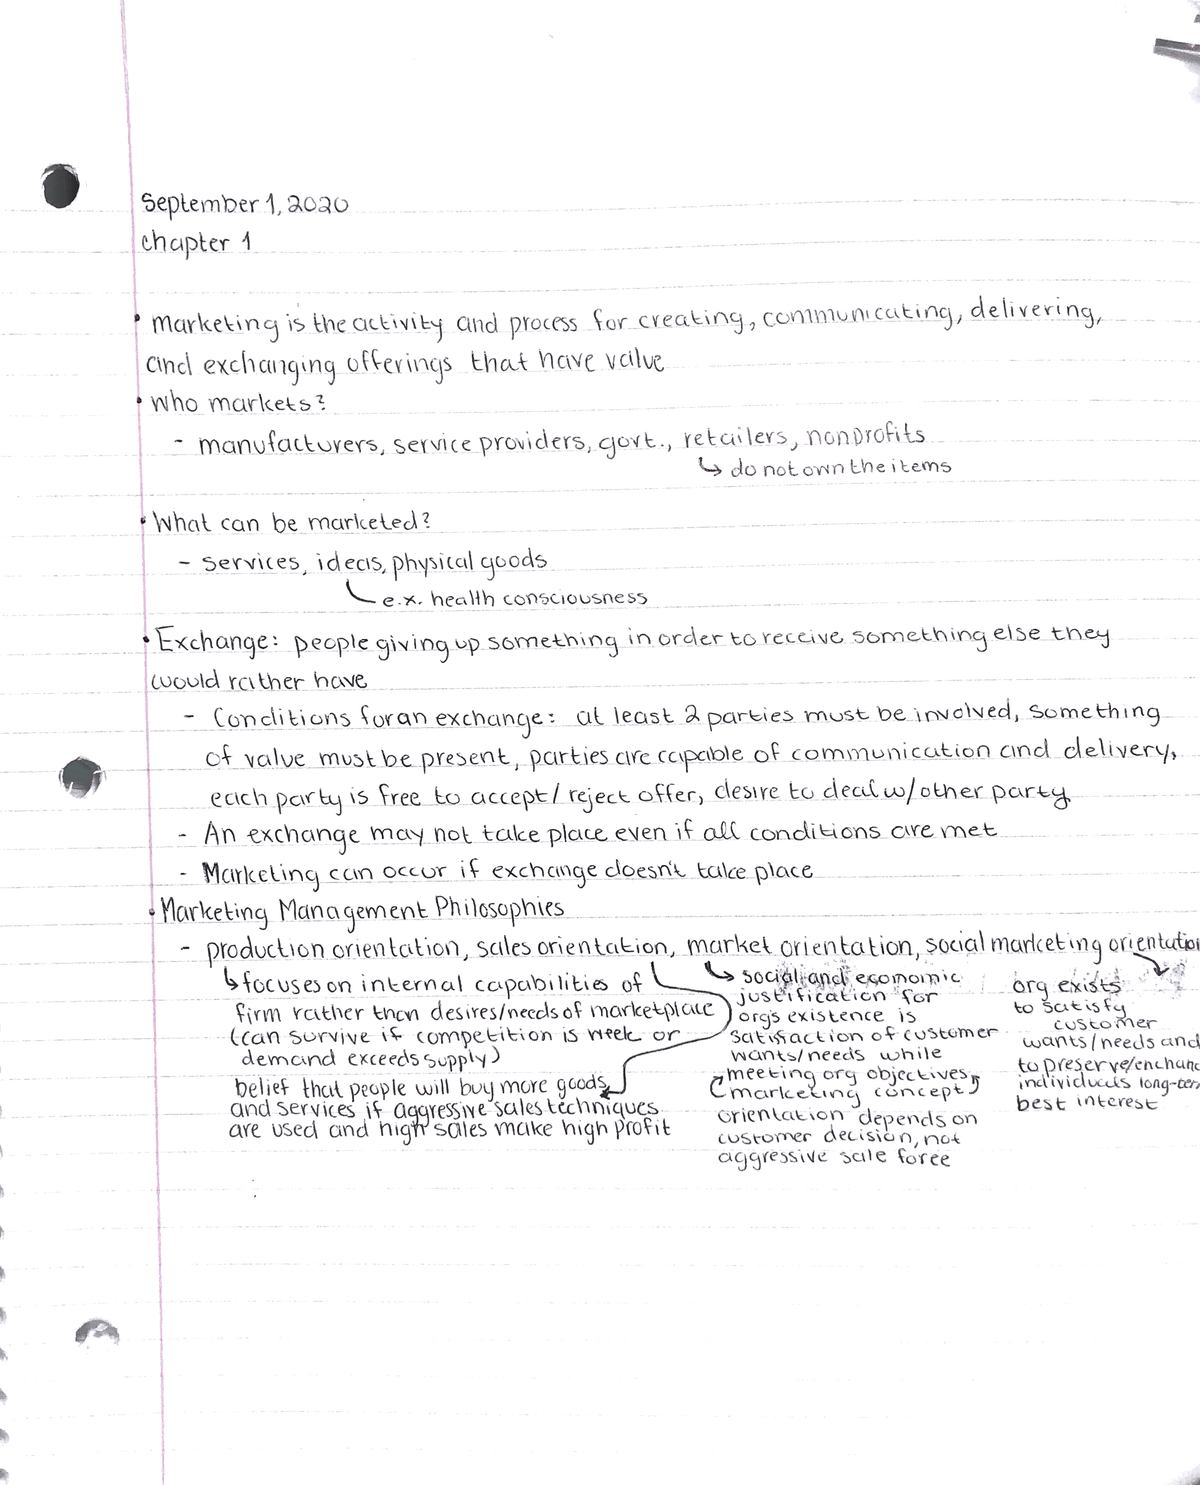 September 1, 2020
chapter 1
• Marketing is the activity and process for creating, communicating, delivering,
and exchanging offerings that have value
• Who markets?
- manufacturers, service providers, govt., retailers, nonprofits
↳ do not own the items
• What can be marketed?
- services, ideas, physical goods
e.x. health consciousness
• Exchange: people giving up something in order to receive something else they
would rather have
- Conditions for an exchange: at least 2 parties must be involved, something
of value must be present, parties are capable of communication and delivery,
each party is free to accept/reject offer, desire to deal w/other party
- An exchange may not take place even if all conditions are met
- Marketing can occur if exchange doesn't take place
• Marketing Management Philosophies
- production orientation, sales orientation, market orientation, social marketing orientation
↳ focuses on internal capabilities of
firm rather than desires/needs of marketplace
(can survive if competition is week or
demand exceeds supply)
belief that people will buy more goods
and services if aggressive sales techniques
are used and high sales make high profit
↳ social and economic
justification for
org's existence is
satisfaction of customer
wants/needs while
meeting org objectives
(marketing concept)
orientation depends on
customer decision, not
aggressive sale force
org exists
to satisfy
customer
wants/needs and
to preserve/enhanc
individuals long-ter
best interest